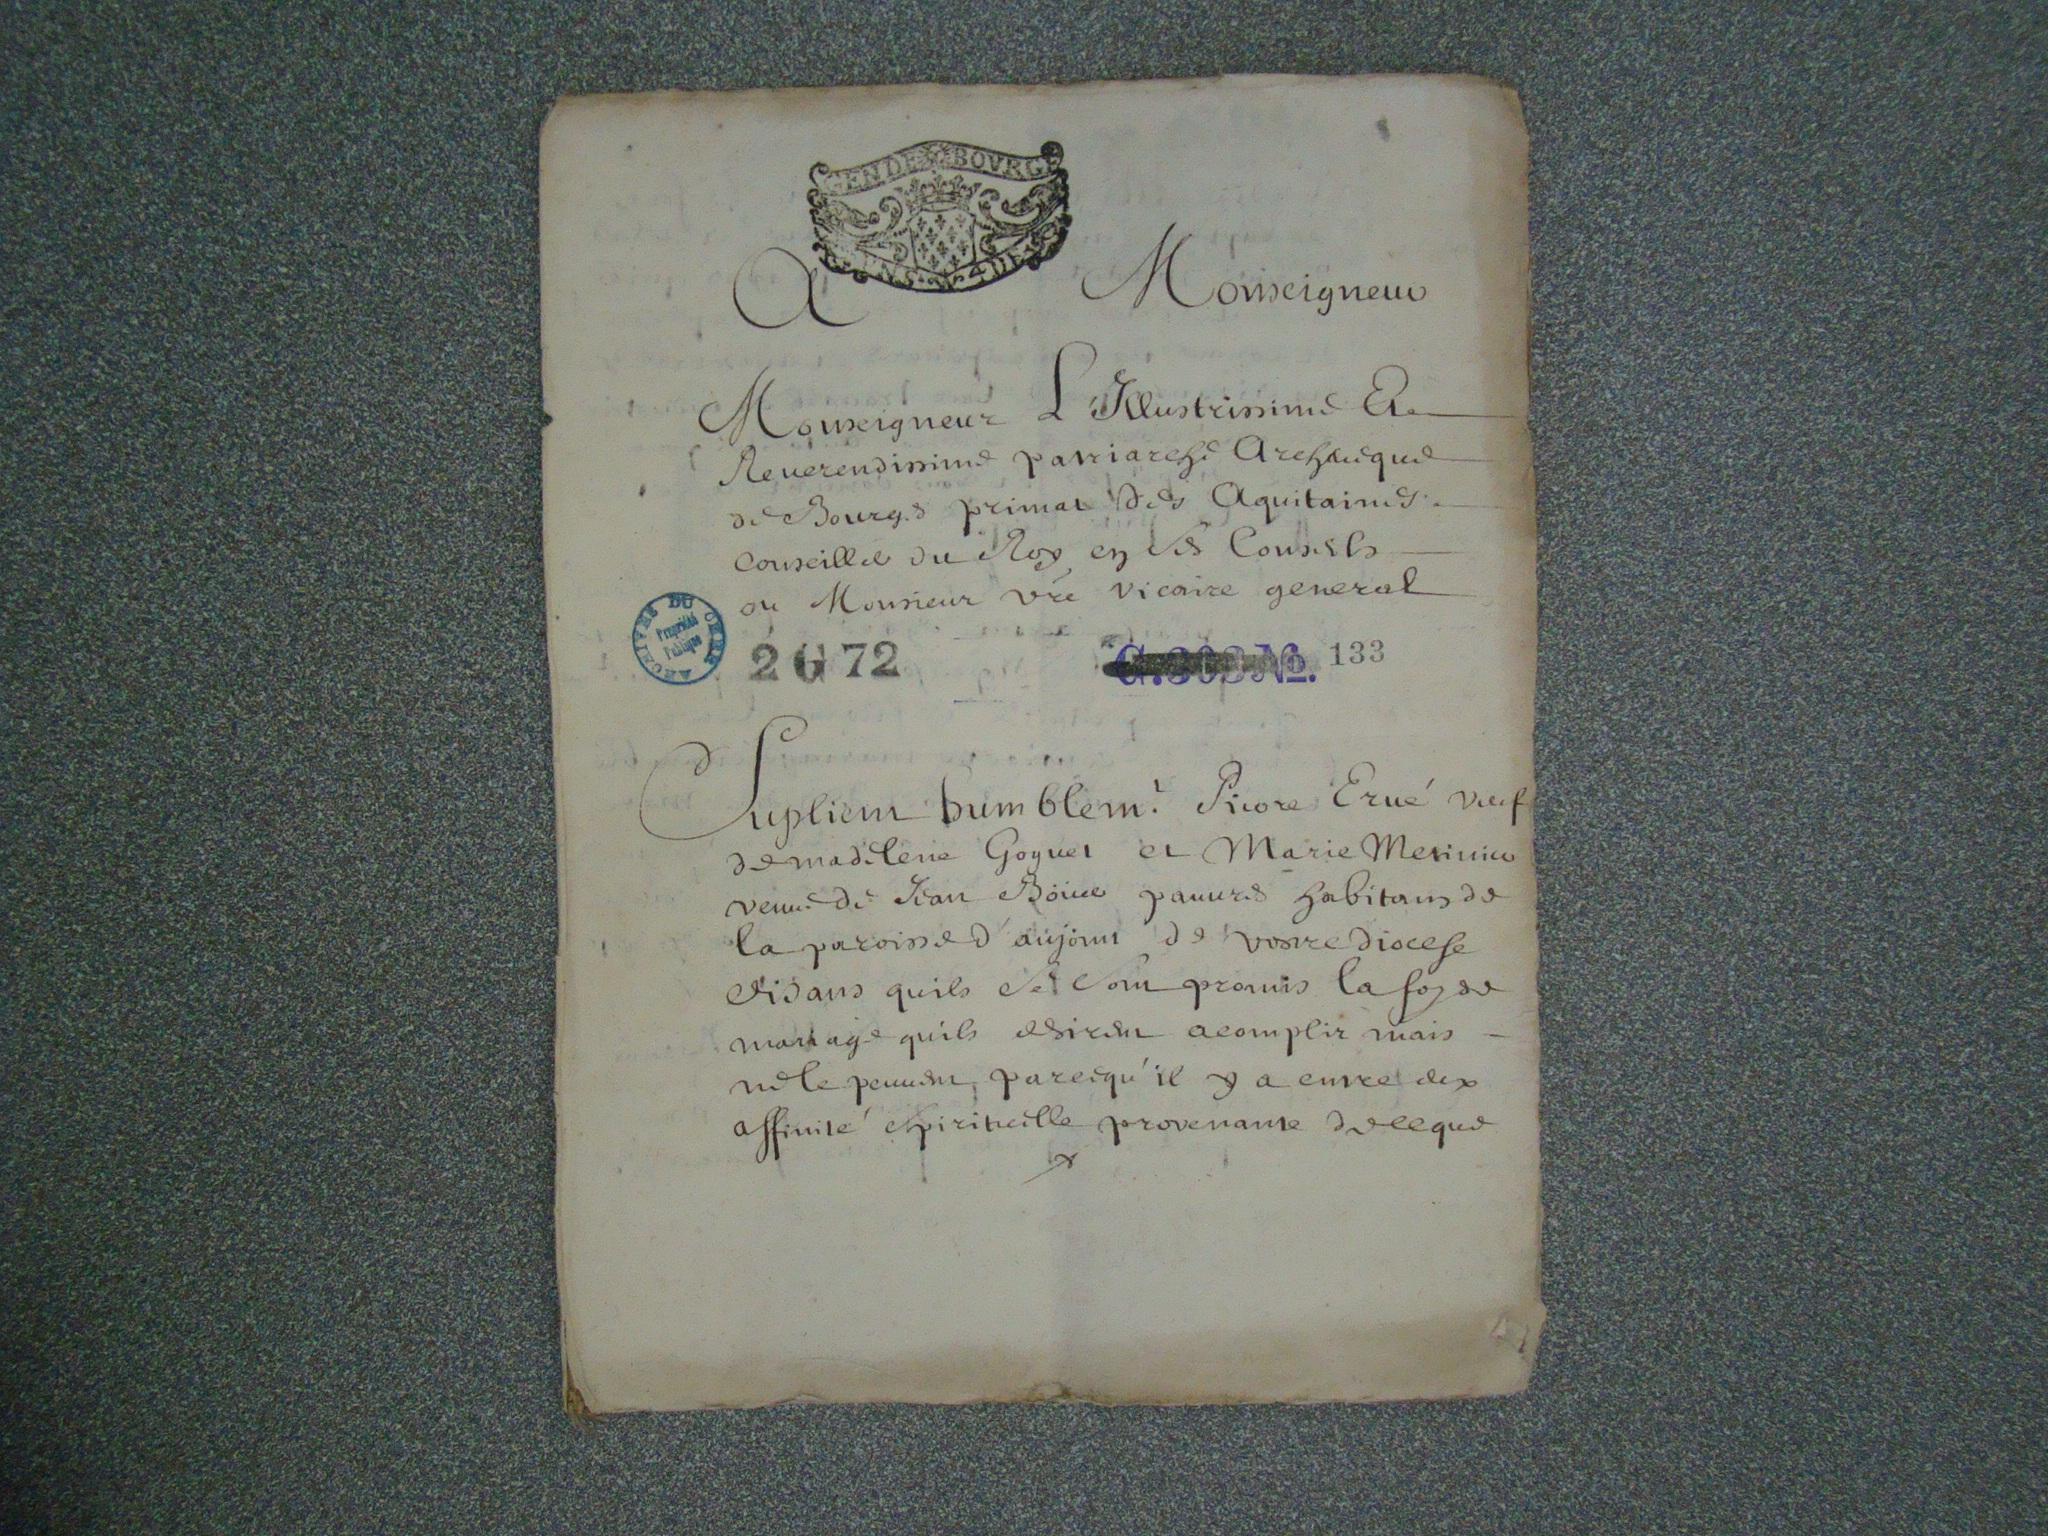 GEN DE BOVRG
A Monseigneur
Monseigneur L'Illustrissime Et
Reverendissime patriarche Archeueque
de Bourges primat des Aquitaines
conseiller du Roy en ses Conseils
ou Monsieur vre vicaire general
ARCHIVES DU CHER
Propriété
Publique
2 G 72 G.303 No. 133
Suplient humblemt. Pierre Erué veuf
de madelene Goguet et Marie
veuue de Jean Boiue pauures habitans de
la paroisse d'aujonn de vostre diocese
disans quils se sont promis la foy de
mariage quils desirent acomplir mais
ne le peuuent, parcequ'il y a entre eux
affinité espirituelle provenante de ce que